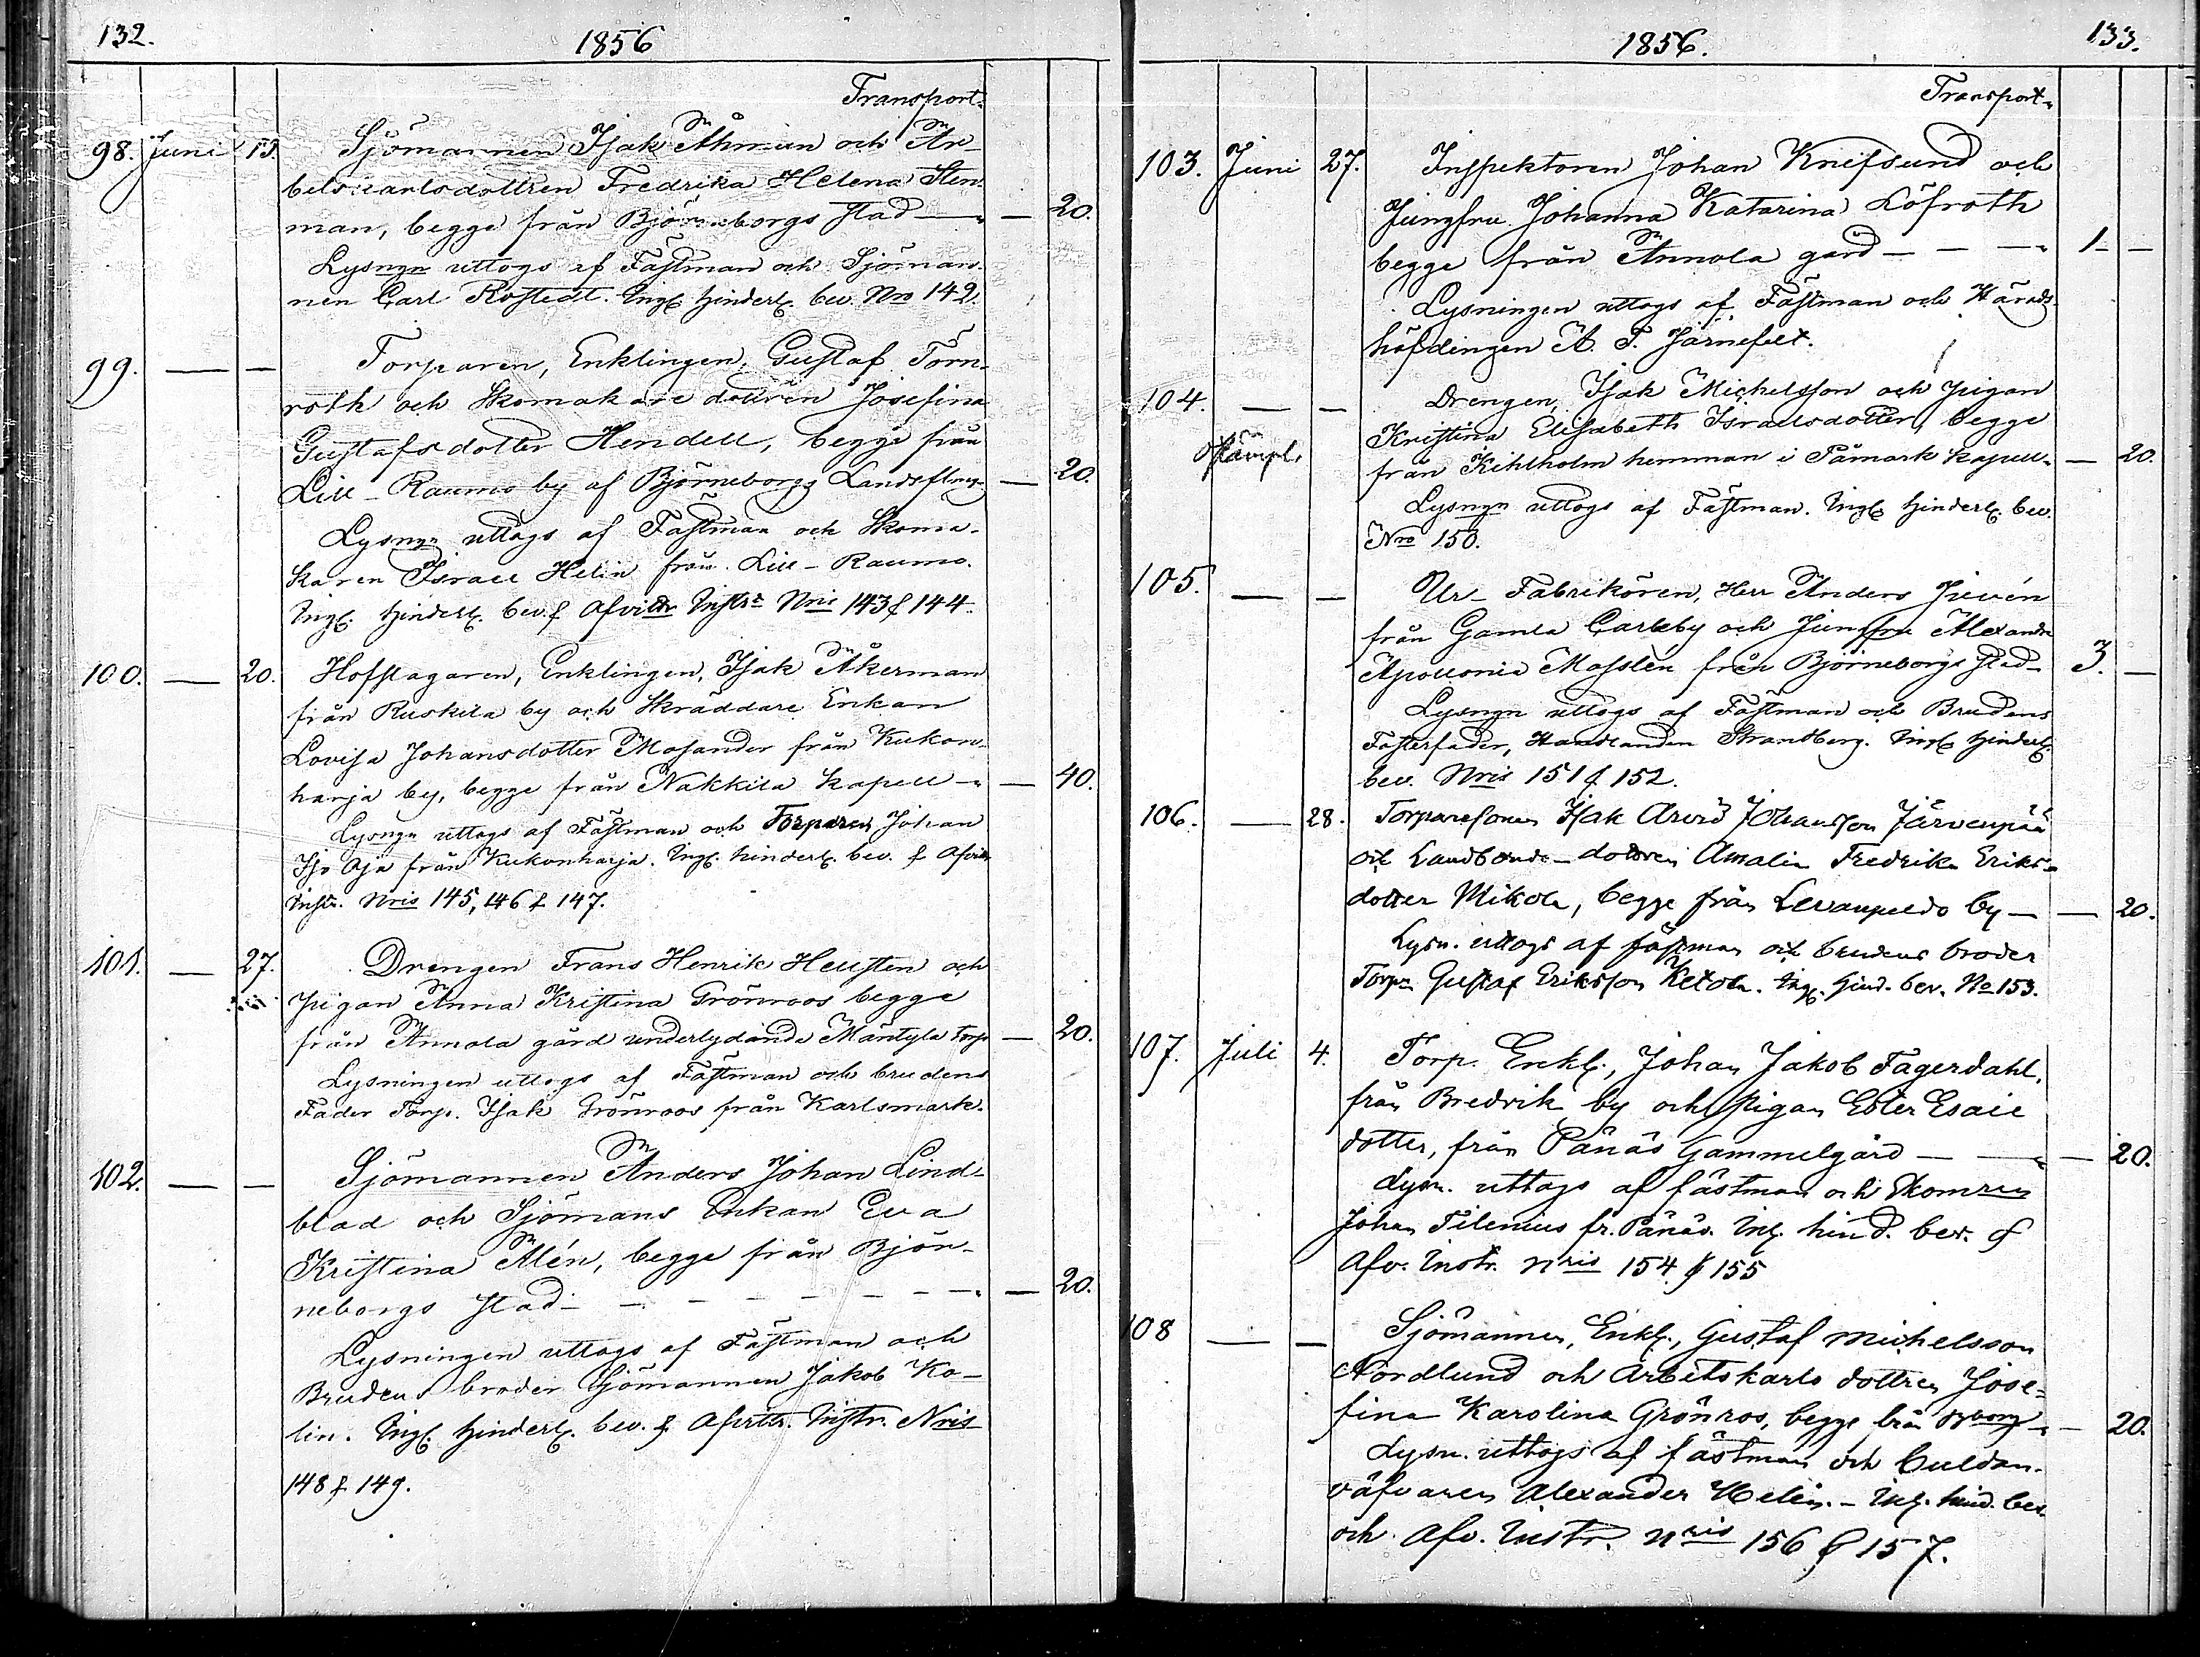 132.
1856
Transport.
98. Juni 13. Sjömannen Isak Åhman och Ar-
betskarlsdottren Fredrika Helena Sten-
man, begge från Björneborgs stad — 20.
Lysngn uttogs af Fästman och Sjöman-
nen Carl Rostedt. Ingl. hinderl. bev. Nro 142.
99. — — Torparen, Enklingen, Gustaf Törn-
roth och Skomakare dottren Josefina
Gustafsdotter Hendell, begge från
Lill-Raumo by af Björneborgs Landsförs. — 20.
Lysngn uttogs af Fästman och Skoma-
karen Israel Helin från Lill-Raumo.
Ingl. hinderl. bev. & Afvittr. Instr. Nris 143 & 144.
100. — 20. Hofslagaren, Enklingen, Isak Åkerman
från Ruskila by och Skräddare Enkan
Lovisa Johansdotter Mosander från Kukon-
harja by, begge från Nakkila kapell — 40.
Lysngn uttogs af Fästman och Torparen Johan
Iso Oja från Kukonharja. Ingl. hinderl. bev. & Afvittr.
Instr. Nris 145, 146 & 147.
101. — 27. Drengen Frans Henrik Hellsten och
pigan Anna Kristina Grönroos begge
från Annola gård underlydande Mäntylä torp — 20.
Lysningen uttogs af Fästman och brudens
Fader Torp. Isak Grönroos från Karlsmark.
102. — — Sjömannen Anders Johan Lind-
blad och Sjömans Enkan Eva
Kristina Alén, begge från Björ-
neborgs stad — 20.
Lysningen uttogs af Fästman och
Brudens broder Sjömannen Jakob Ko-
lin. Ingl. hinderl. bev. & Afvittr. Instr. Nris
148 & 149.
1856.
133.
Transport.
103. Juni 27. Inspektoren Johan Knifsund och
Jungfru Johanna Katarina Löfroth
begge från Annola gård — 1. —
Lysningen uttogs af Fästman och Härads-
höfdingen A. F. Järnefelt.
104. — — Drengen Isak Michelsson och pigan
Kristina Elisabeth Israelsdotter, begge
från Kihlholm hemman i Påmark kapell — 20.
Lysngn uttogs af Fästman. Ingl. hinderl. bev.
Nro 150.
105. — — Ur-Fabrikören, Herr Anders
från Gamla Carleby och Jungfru Alexandra
Apollonia Mosslén från Björneborgs stad — 3. —
Lysngn uttogs af Fästman och Brudens
Fosterfader, Handlanden Strandberg. Ingl. hinderl.
bev. Nris 151 & 152.
106. — 28. Torparesonen Isak Arvid Johansson Järvenpää
och Landbonde-dottren Amalia Fredrika Eriks-
dotter Mikola, begge från Levanpelto by — 20.
Lysn. uttogs af fästman och brudens broder
Torp. Gustaf Eriksson Ketola. Ingl. hind. bev. No 153.
107. Juli 4. Torp. Enkl., Johan Jakob Fagerdahl,
från Bredvik by och pigan Ester Esaie
dotter, från Pånäs Gammelgård — 20.
Lysn. uttogs af fästman och Skomren
Johan Tilenius fr. Pånäs. Ingl. hind. bev. &
Afv. Instr. nris 154 & 155
108 — — Sjömannen, Enkl., Gustaf Michelsson
Nordlund och Arbetskarls dottren Jose-
fina Karolina Grönros, begge från Bjborg — 20.
Lysn. uttogs af fästman och buldan-
väfvaren Alexander Helin. — Ingl. hind. bev.
och Afv. Instr. nris 156 & 157.